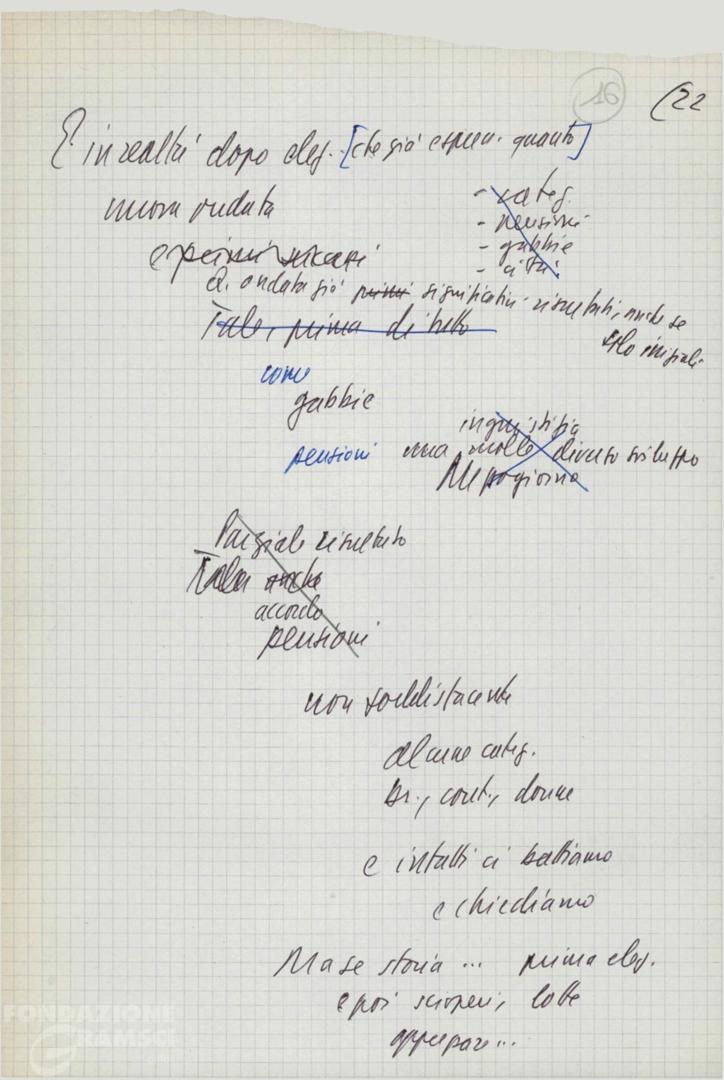 16 (22
E in realtà dopo elez. [che già espres. quanto]
nuova ondata
- categ.
- pensioni
- gabbie
- città
e primi
Q. ondata già primi significativi risultati, anche se
solo iniziali
Tale, prima di tutto
come
gabbie
ingiustizia
pensioni una molla diverso sviluppo
Mezzogiorno
Parziale risultato
Tale anche
accordo
pensioni
non soddisfacente
alcune categ.
br., cont., donne
e infatti ci battiamo
e chiediamo
Ma se storia ... prima elez.
e poi scioperi, lotte
appare...
FONDAZIONE
GRAMSCI